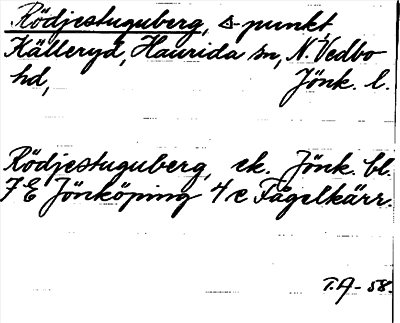 Rödjestuguberg, △-punkt,
Källeryd, Haurida sn, N. Vedbo
hd, Jönk. l.
Rödjestuguberg, ek. Jönk. bl.
7 E Jönköping 4 e Fågelkärr.
T.A-58.